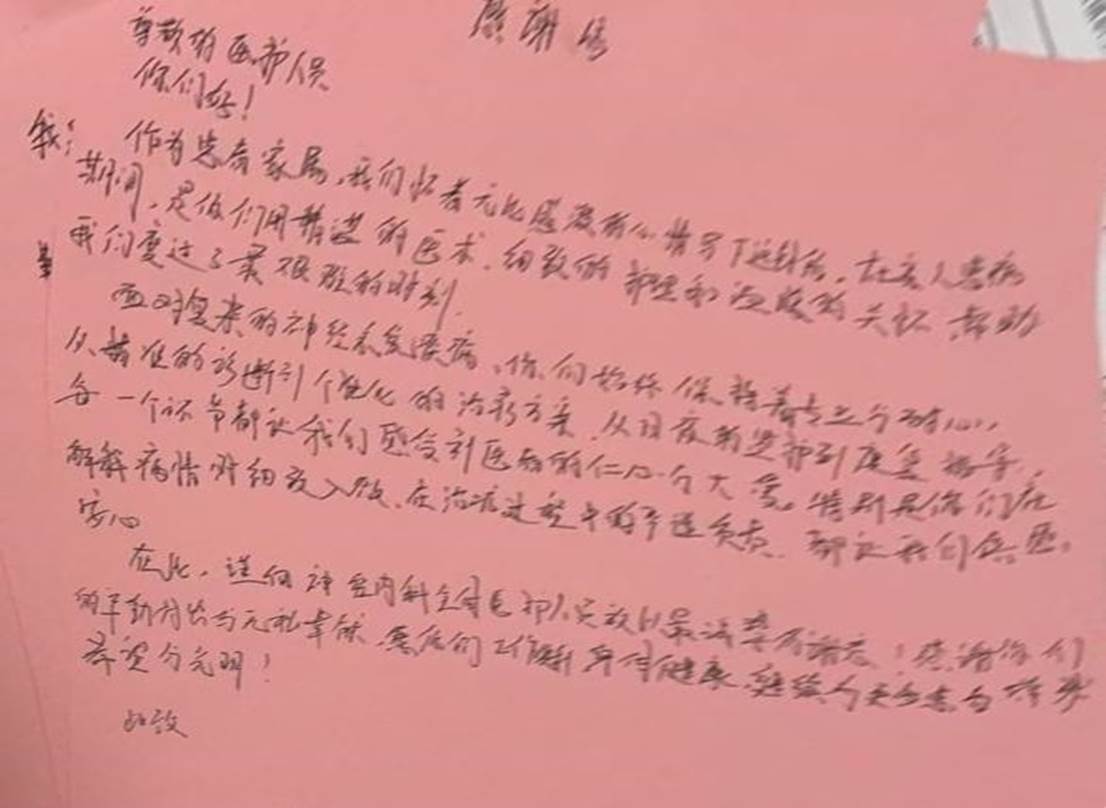 感谢信
尊敬的医护人员
你们好!
作为患者家属,我们怀着无比感激的心情写下这封信。在家人患病
期间,是你们用精湛的医术、细致的护理和温暖的关怀帮助
我们度过了最艰难的时刻。
面对复杂的神经系统疾病,你们始终保持着专业与耐心,
从精准的诊断到个性化的治疗方案,从日夜的监护到康复指导,
每一个环节都让我们感受到医者的仁心与大爱。特别是你们在
解释病情时细致入微、在治疗过程中的认真负责,都让我们
安心
在此,谨向神经内科全体医护人员致以最诚挚的谢意!感谢你们
的辛勤付出与无私奉献,愿你们工作顺利身体健康,继续为更多患者带来
希望与光明!
此致